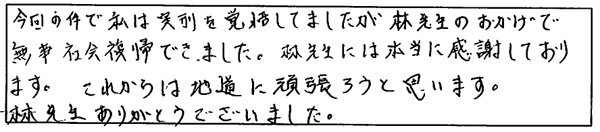 今回の件で私は実刑を覚悟してましたが林先生のおかげで
無事社会復帰できました。林先生には本当に感謝しており
ます。これからは地道に頑張ろうと思います。
林先生ありがとうございました。